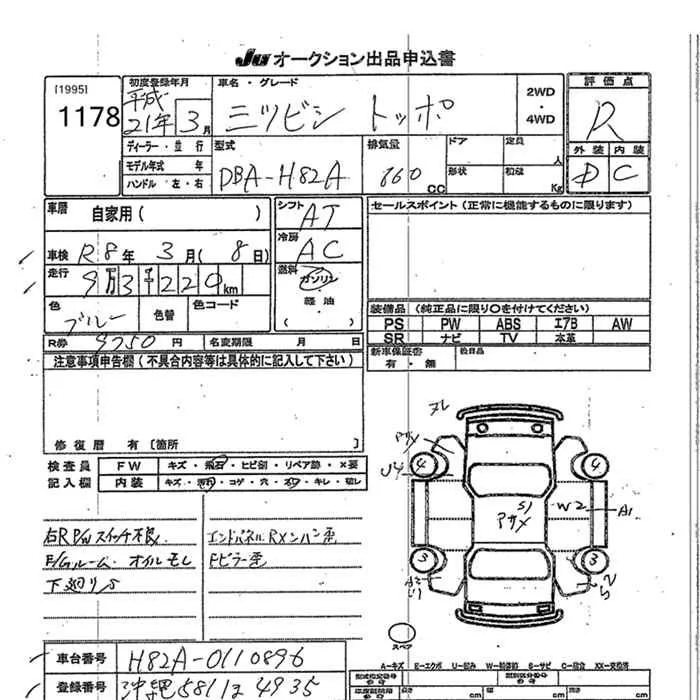 JU オークション出品申込書
[1995]
1178
初度登録年月
平成
21年 3月
車名・グレード
三ツビシ トッポ
2WD
・
4WD
評価点
R
外装 内装
D C
ディーラー・並行
モデル年式 年
ハンドル 左・右
型式
DBA-H82A
排気量
660 CC
ドア
定員
人
形状
積載
Kg
車歴
自家用( )
車検 R8年 3月( 8日)
走行 9万3千220km
色
ブルー
色替
色コード
シフト
AT
冷房
AC
燃料
ガソリン
・
軽油
( )
セールスポイント(正常に機能するものに限ります)
装備品(純正品に限り○を付けてください)
PS PW ABS エアB AW
SR ナビ TV 本革
新車保証書
有・無
R券 9750円
名変期限 月 日
注意事項申告欄(不具合内容等は具体的に記入して下さい)
修復歴 有[箇所 ]
検査員
記入欄
FW キズ・飛石・ヒビ割・リペア跡・X要
内装 キズ・汚れ・コゲ・穴・キレ・破レ
右R P/W スイッチ不良
E/Gルーム オイルモレ
下廻りS
エンドパネル RXンバー歪
Fピラー歪
アサメ
U4
4
4
S1
アサメ
W2
A1
3
3
スペア
A-キズ E-エクボ U-凹み W-補修跡 S-サビ C-腐蝕 XX-交換済
車台番号 H82A-0110896
登録番号 沖縄581 4935
cm cm cm